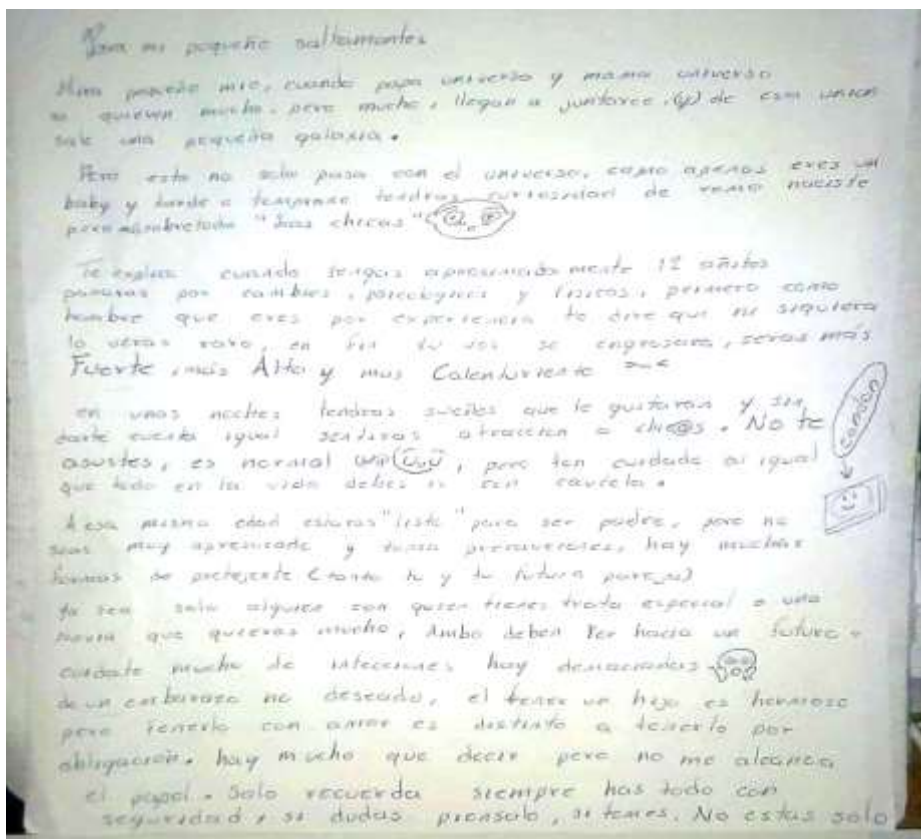 Para mi pequeño saltamontes
Mira pequeño mio, cuando papa universo y mama universo
se quieren mucho, pero mucho, llegan a juntarce, (y) de esa union
sale una pequeña galaxia.
Pero esto no solo pasa con el universo, como apenas eres un
baby y tarde o temprano tendras curiosidad de como naciste
pero sobretodo "las chicas"
Te explico cuando tengas aproximadamente 12 añitos
pasaras por cambios, psicologicos y fisicos, primero como
hombre que eres por experiencia te dire que ni siquiera
lo veras raro, en fin tu voz se engrosara, seras más
Fuerte, más Alto y mas Calenturiente
en unas noches tendras sueños que te gustaran y sin
darte cuenta igual sentiras atraccion a chic@s. No te
asustes, es normal, pero ten cuidado al igual
que todo en la vida debes ir con cautela.
condón
A esa misma edad estaras "listo" para ser padre, pero no
seas muy apresurado y toma precauciones, hay muchas
formas de protejerte (tanto tu y tu futura pareja)
ya sea solo alguien con quien tienes trato especial o una
novia que quieras mucho, Ambo deben Ver hacia un futuro.
cuidate mucho de infecciones hay demaciadas
de un embarazo no deseado, el tener un hijo es hermoso
pero tenerlo con amor es distinto a tenerlo por
obligacion. hay mucho que decir pero no me alcanza
el papel. Solo recuerda siempre has todo con
seguridad, si dudas piensalo, si temes. No estas solo